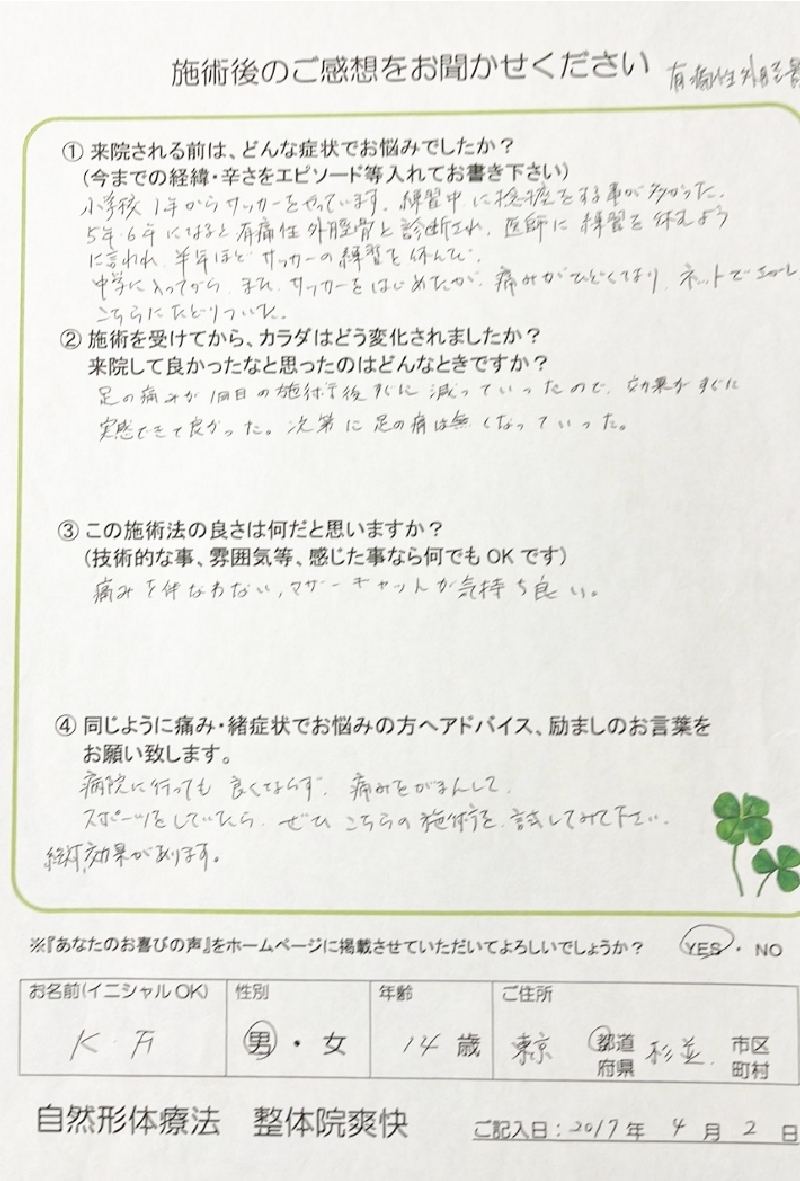 施術後のご感想をお聞かせください 有痛性外脛
① 来院される前は、どんな症状でお悩みでしたか？
（今までの経緯・辛さをエピソード等入れてお書き下さい）
小学校1年からサッカーをやっています。練習中に捻挫をする事が多かった。
5年・6年になると有痛性外脛骨と診断され、医師に練習を休むよう
に言われ、半年ほどサッカーの練習を休んだ。
中学に入ってから、また、サッカーをはじめたが、痛みがひどくなり、ネットでさがし
こちらにたどりついた。
② 施術を受けてから、カラダはどう変化されましたか？
来院して良かったなと思ったのはどんなときですか？
足の痛みが1回目の施術後すぐに減っていったので、効果がすぐに
実感できて良かった。次第に足の痛は無くなっていった。
③ この施術法の良さは何だと思いますか？
（技術的な事、雰囲気等、感じた事なら何でもOKです）
痛みを伴なわない、マザーキャットが気持ち良い。
④ 同じように痛み・緒症状でお悩みの方へアドバイス、励ましのお言葉を
お願い致します。
病院に行っても良くならず、痛みをがまんして、
スポーツをしていたら、ぜひこちらの施術を、試してみて下さい。
絶対効果があります。
※『あなたのお喜びの声』をホームページに掲載させていただいてよろしいでしょうか？ YES・NO
お名前（イニシャルOK） 性別 年齢 ご住所
K・F 男・女 14歳 東京 都道府県 杉並 市区町村
自然形体療法 整体院爽快 ご記入日：2017年4月2日